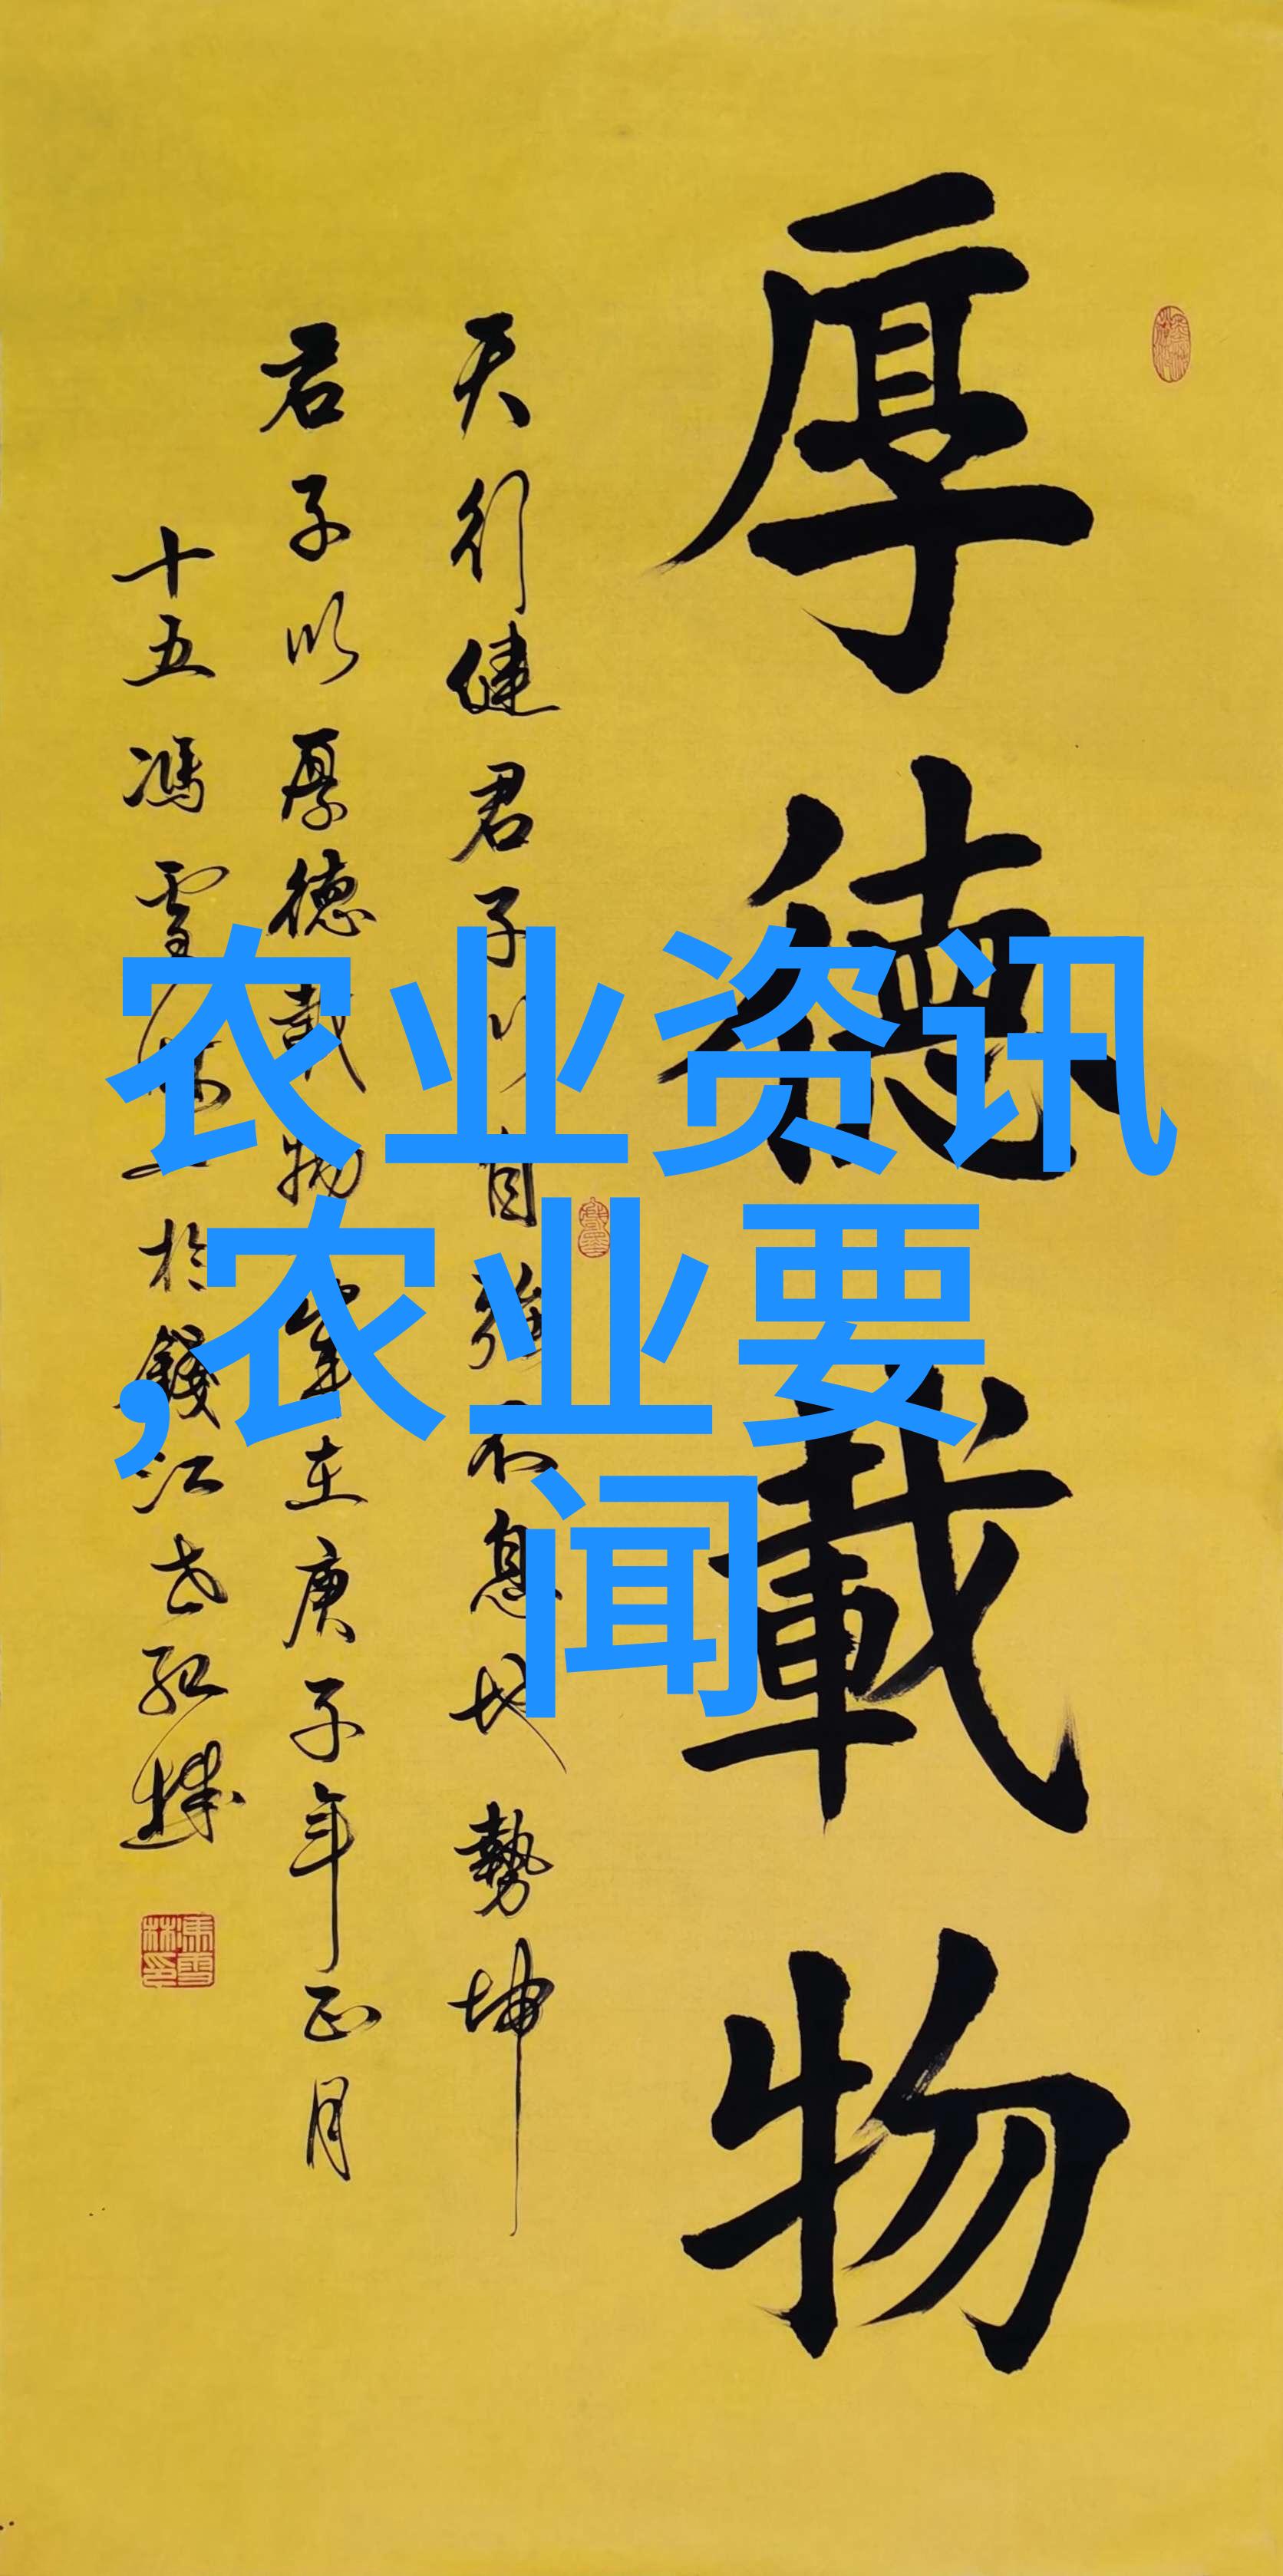 厚德載物
天行健君子以自強不息地勢坤
君子以厚德載物 歲在庚子年正月
十五馮雪林書於錢江
馮雪林印
农业资讯
,农业要
闻